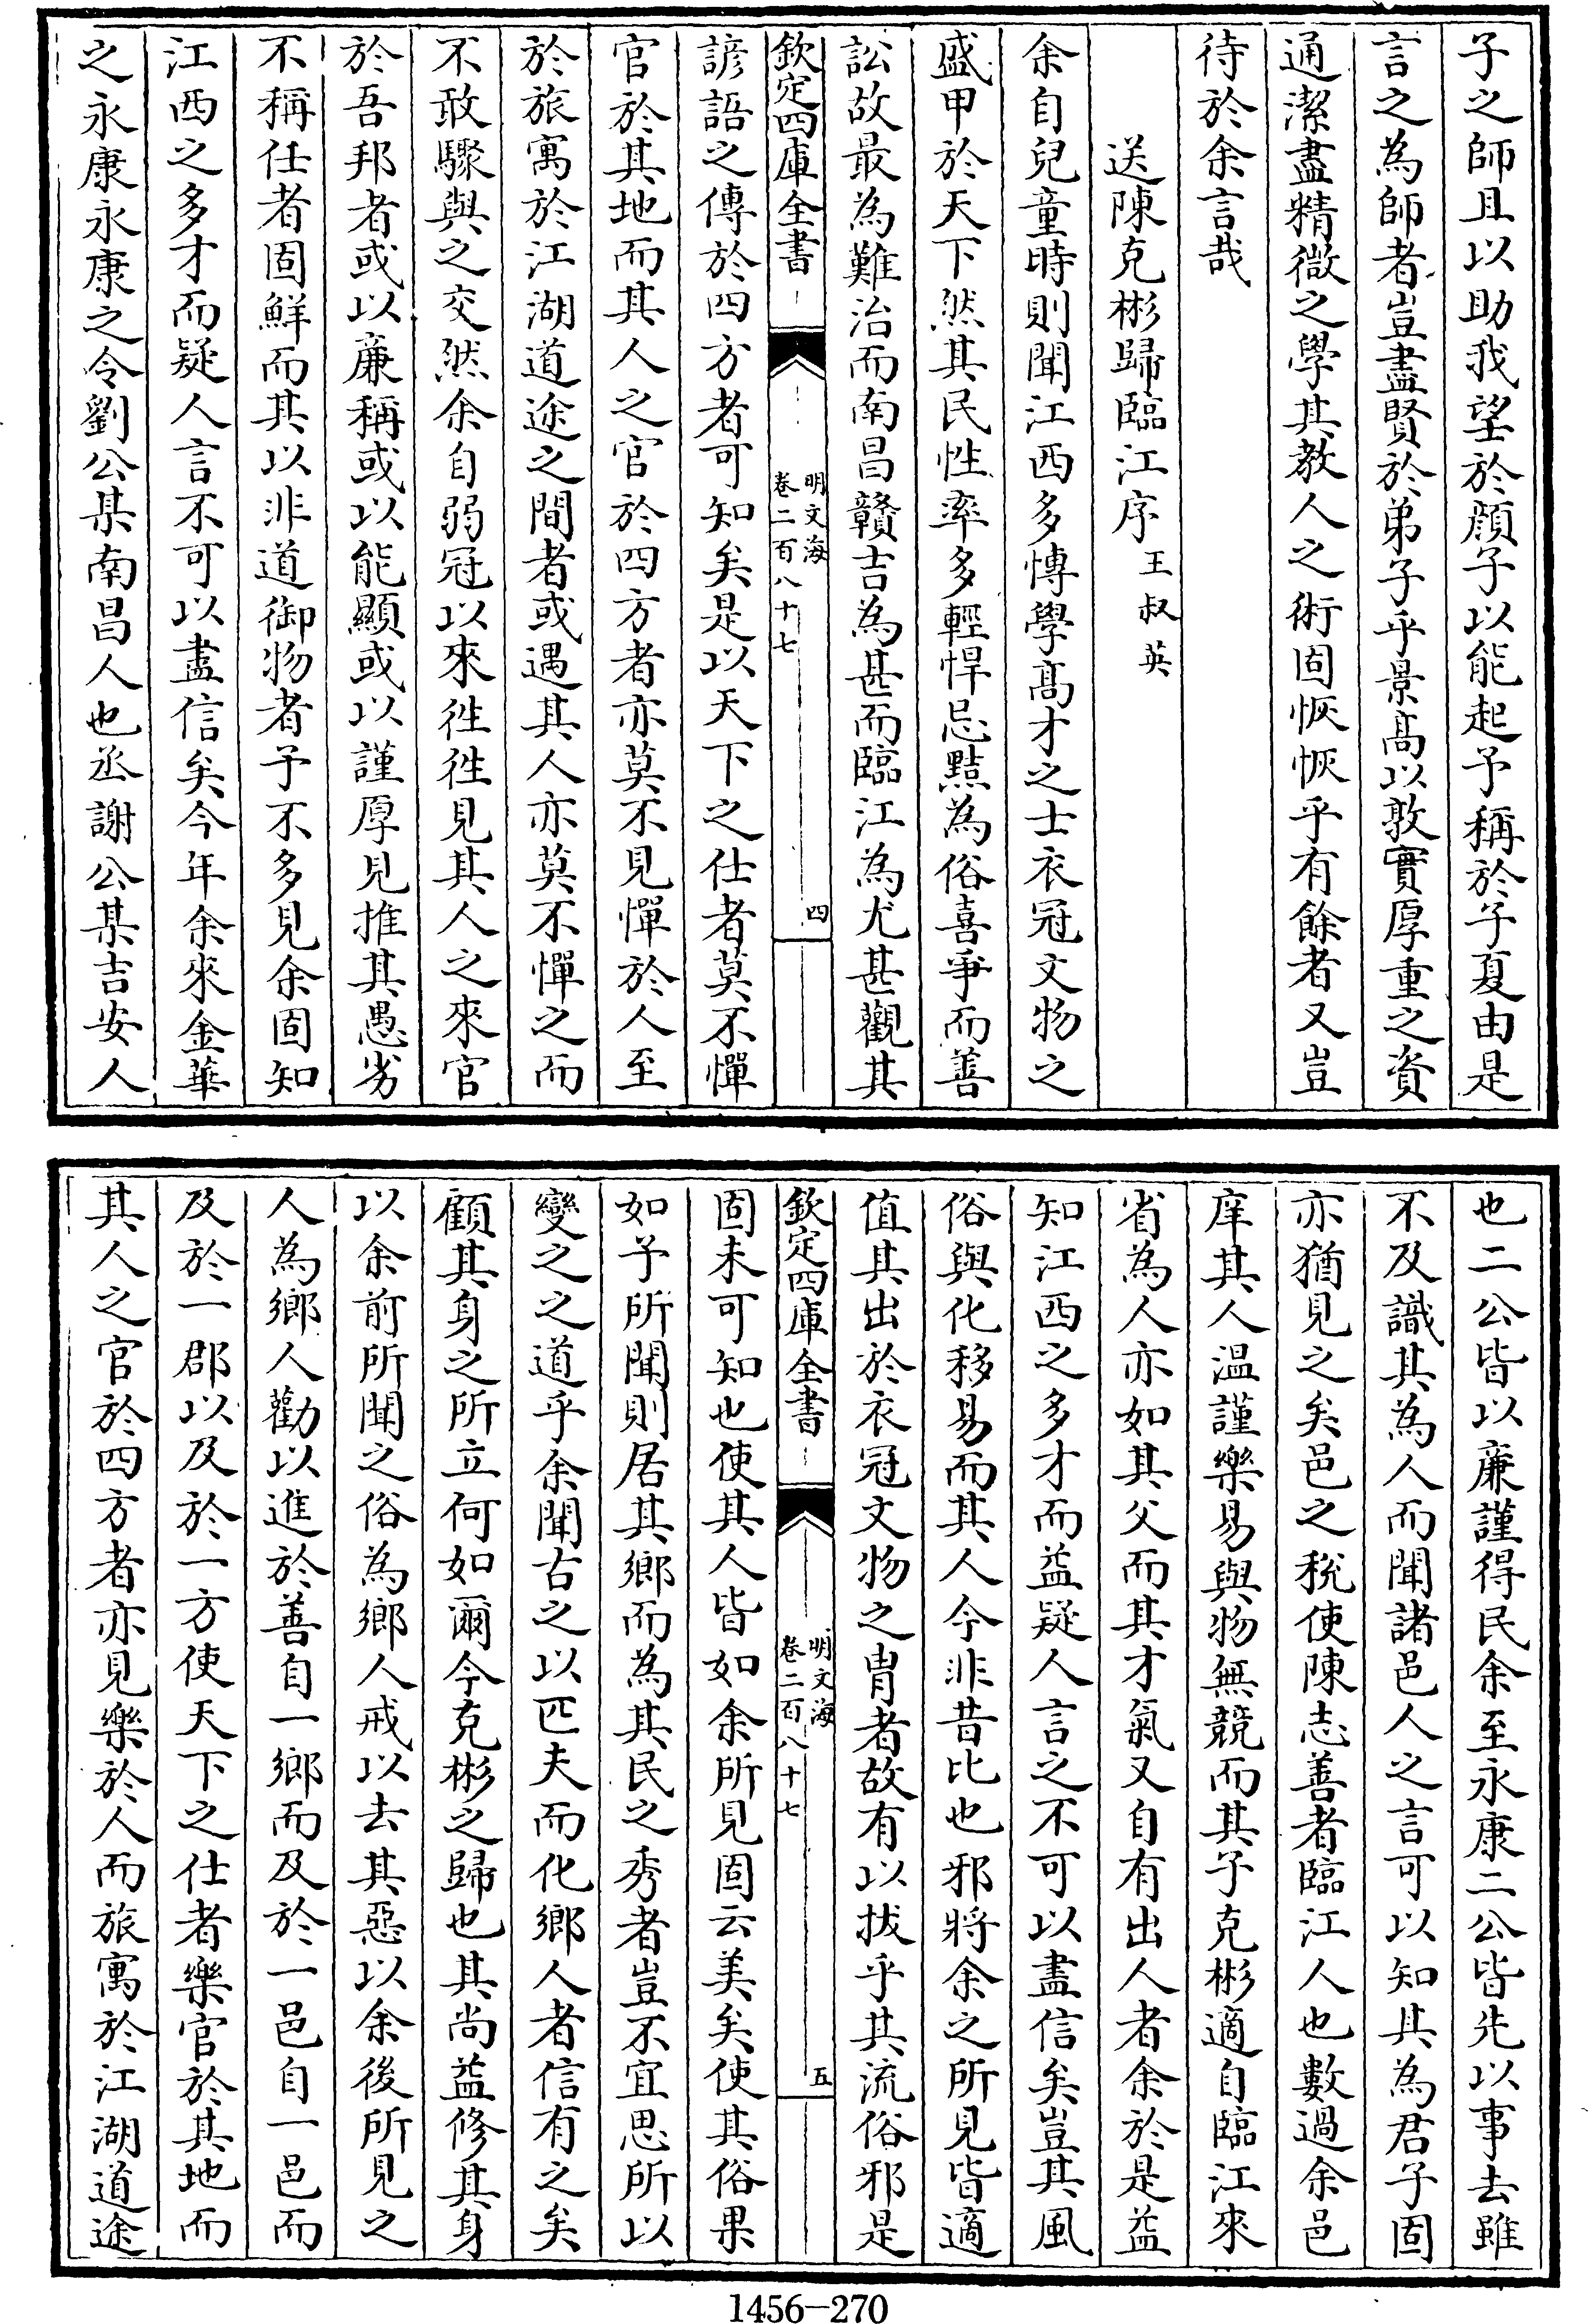 子之師且以助我望於顔子以能起予稱於子夏由是
言之為師者豈盡賢於弟子乎景髙以敦實厚重之資
通潔盡精微之學其教人之術固恢恢乎有餘者又豈
待於余言哉
送陳克彬歸臨江序 王叔英
余自兒童時則聞江西多慱學髙才之士衣冠文物之
盛甲於天下然其民性率多輕悍忌黠為俗喜爭而善
訟故最為難治而南昌贛吉為甚而臨江為尤甚觀其
欽定四庫全書
明文海
卷二百八十七
四
諺語之傳於四方者可知矣是以天下之仕者莫不憚
官於其地而其人之官於四方者亦莫不見憚於人至
於旅寓於江湖道途之間者或遇其人亦莫不憚之而
不敢驟與之交然余自弱冠以來徃徃見其人之來官
於吾邦者或以㢘稱或以能顯或以謹厚見推其愚劣
不稱任者固鮮而其以非道御物者予不多見余固知
江西之多才而疑人言不可以盡信矣今年余來金華
之永康永康之令劉公某南昌人也丞謝公某吉安人
也二公皆以㢘謹得民余至永康二公皆先以事去雖
不及識其為人而聞諸邑人之言可以知其為君子固
亦猶見之矣邑之稅使陳志善者臨江人也數過余邑
庠其人温謹樂易與物無競而其子克彬適自臨江來
省為人亦如其父而其才氣又自有出人者余於是益
知江西之多才而益疑人言之不可以盡信矣豈其風
俗與化移易而其人今非昔比也邪將余之所見皆適
值其出於衣冠文物之胄者故有以拔乎其流俗邪是
欽定四庫全書
明文海
卷二百八十七
五
固未可知也使其人皆如余所見固云美矣使其俗果
如予所聞則居其鄉而為其民之秀者豈不宜思所以
變之之道乎余聞古之以匹夫而化鄉人者信有之矣
顧其身之所立何如爾今克彬之歸也其尚益修其身
以余前所聞之俗為鄉人戒以去其惡以余後所見之
人為鄉人勸以進於善自一鄉而及於一邑自一邑而
及於一郡以及於一方使天下之仕者樂官於其地而
其人之官於四方者亦見樂於人而旅寓於江湖道途
1456—270